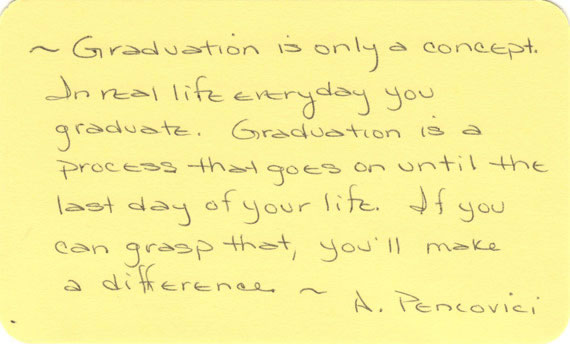 ~ Graduation is only a concept.
In real life everyday you
graduate. Graduation is a
process that goes on until the
last day of your life. If you
can grasp that, you'll make
a difference. ~
A. Pencovici